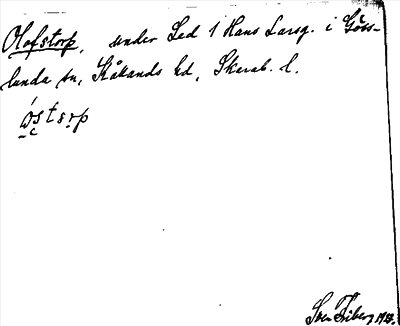 Olofstorp, under Led 1 Hans Larsg. i Göss-
lunda sn, Kåkands hd, Skarab. l.
ωstsrp
Sven Friberg 1933.